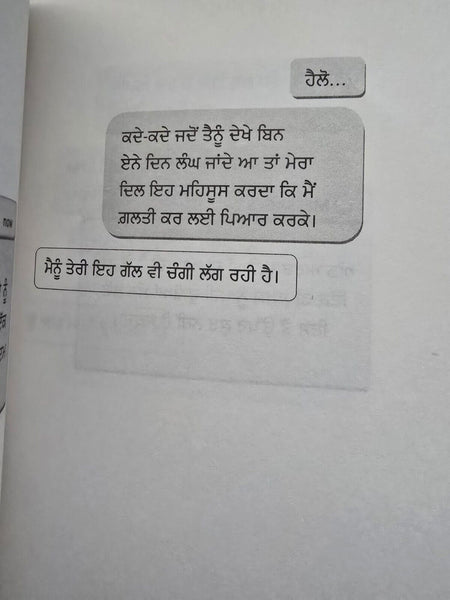 ਹੈਲੋ...
ਕਦੇ-ਕਦੇ ਜਦੋਂ ਤੈਨੂੰ ਦੇਖੇ ਬਿਨ
ਏਨੇ ਦਿਨ ਲੰਘ ਜਾਂਦੇ ਆ ਤਾਂ ਮੇਰਾ
ਦਿਲ ਇਹ ਮਹਿਸੂਸ ਕਰਦਾ ਕਿ ਮੈਂ
ਗ਼ਲਤੀ ਕਰ ਲਈ ਪਿਆਰ ਕਰਕੇ।
ਮੈਨੂੰ ਤੇਰੀ ਇਹ ਗੱਲ ਵੀ ਚੰਗੀ ਲੱਗ ਰਹੀ ਹੈ।
now